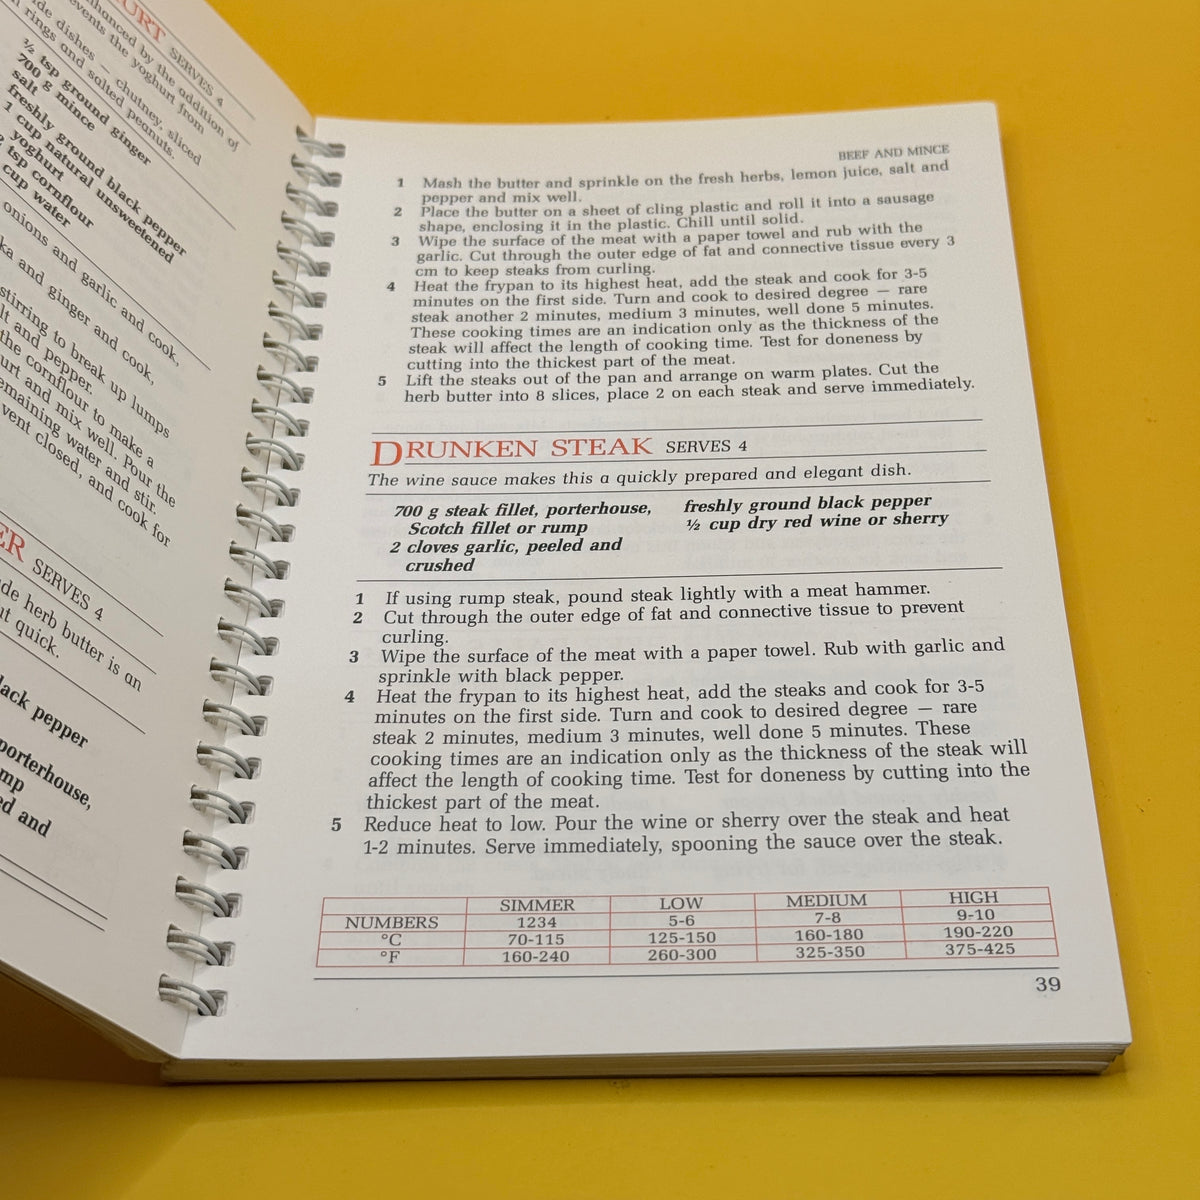 URT SERVES 4
nhanced by the addition of
events the yoghurt from
ide dishes – chutney, sliced
n rings and salted peanuts.
½ tsp ground ginger
700 g mince
salt
freshly ground black pepper
1 cup natural unsweetened
yoghurt
tsp cornflour
cup water
onions and garlic and cook,
ka and ginger and cook,
stirring to break up lumps
lt and pepper.
the cornflour to make a
urt and mix well. Pour the
emaining water and stir.
vent closed, and cook for
ER SERVES 4
de herb butter is an
ut quick.
lack pepper
porterhouse,
mp
ed and
BEEF AND MINCE
1 Mash the butter and sprinkle on the fresh herbs, lemon juice, salt and
pepper and mix well.
2 Place the butter on a sheet of cling plastic and roll it into a sausage
shape, enclosing it in the plastic. Chill until solid.
3 Wipe the surface of the meat with a paper towel and rub with the
garlic. Cut through the outer edge of fat and connective tissue every 3
cm to keep steaks from curling.
4 Heat the frypan to its highest heat, add the steak and cook for 3-5
minutes on the first side. Turn and cook to desired degree — rare
steak another 2 minutes, medium 3 minutes, well done 5 minutes.
These cooking times are an indication only as the thickness of the
steak will affect the length of cooking time. Test for doneness by
cutting into the thickest part of the meat.
5 Lift the steaks out of the pan and arrange on warm plates. Cut the
herb butter into 8 slices, place 2 on each steak and serve immediately.
DRUNKEN STEAK SERVES 4
The wine sauce makes this a quickly prepared and elegant dish.
700 g steak fillet, porterhouse,
Scotch fillet or rump
2 cloves garlic, peeled and
crushed
freshly ground black pepper
½ cup dry red wine or sherry
1 If using rump steak, pound steak lightly with a meat hammer.
2 Cut through the outer edge of fat and connective tissue to prevent
curling.
3 Wipe the surface of the meat with a paper towel. Rub with garlic and
sprinkle with black pepper.
4 Heat the frypan to its highest heat, add the steaks and cook for 3-5
minutes on the first side. Turn and cook to desired degree — rare
steak 2 minutes, medium 3 minutes, well done 5 minutes. These
cooking times are an indication only as the thickness of the steak will
affect the length of cooking time. Test for doneness by cutting into the
thickest part of the meat.
5 Reduce heat to low. Pour the wine or sherry over the steak and heat
1-2 minutes. Serve immediately, spooning the sauce over the steak.
SIMMER LOW MEDIUM HIGH
NUMBERS 1234 5-6 7-8 9-10
°C 70-115 125-150 160-180 190-220
°F 160-240 260-300 325-350 375-425
39